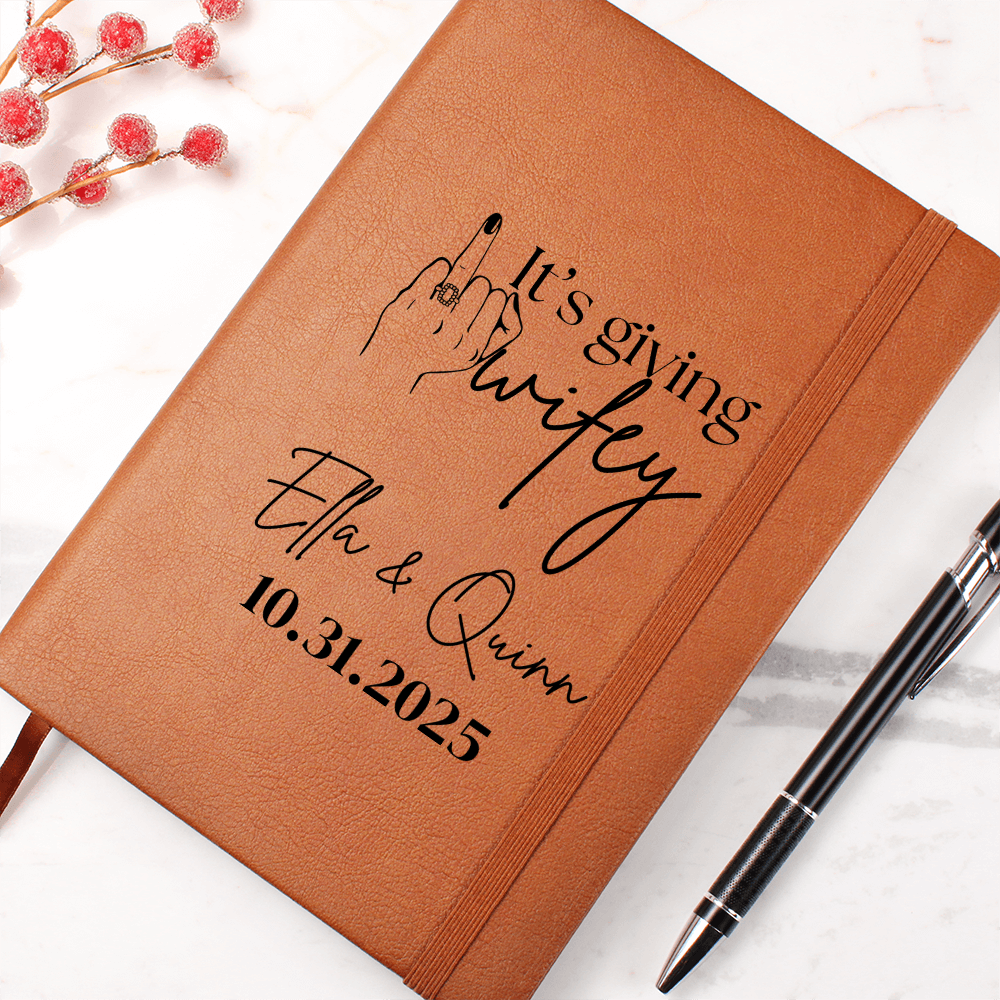 It's giving
wifey
Ella & Quinn
10.31.2025